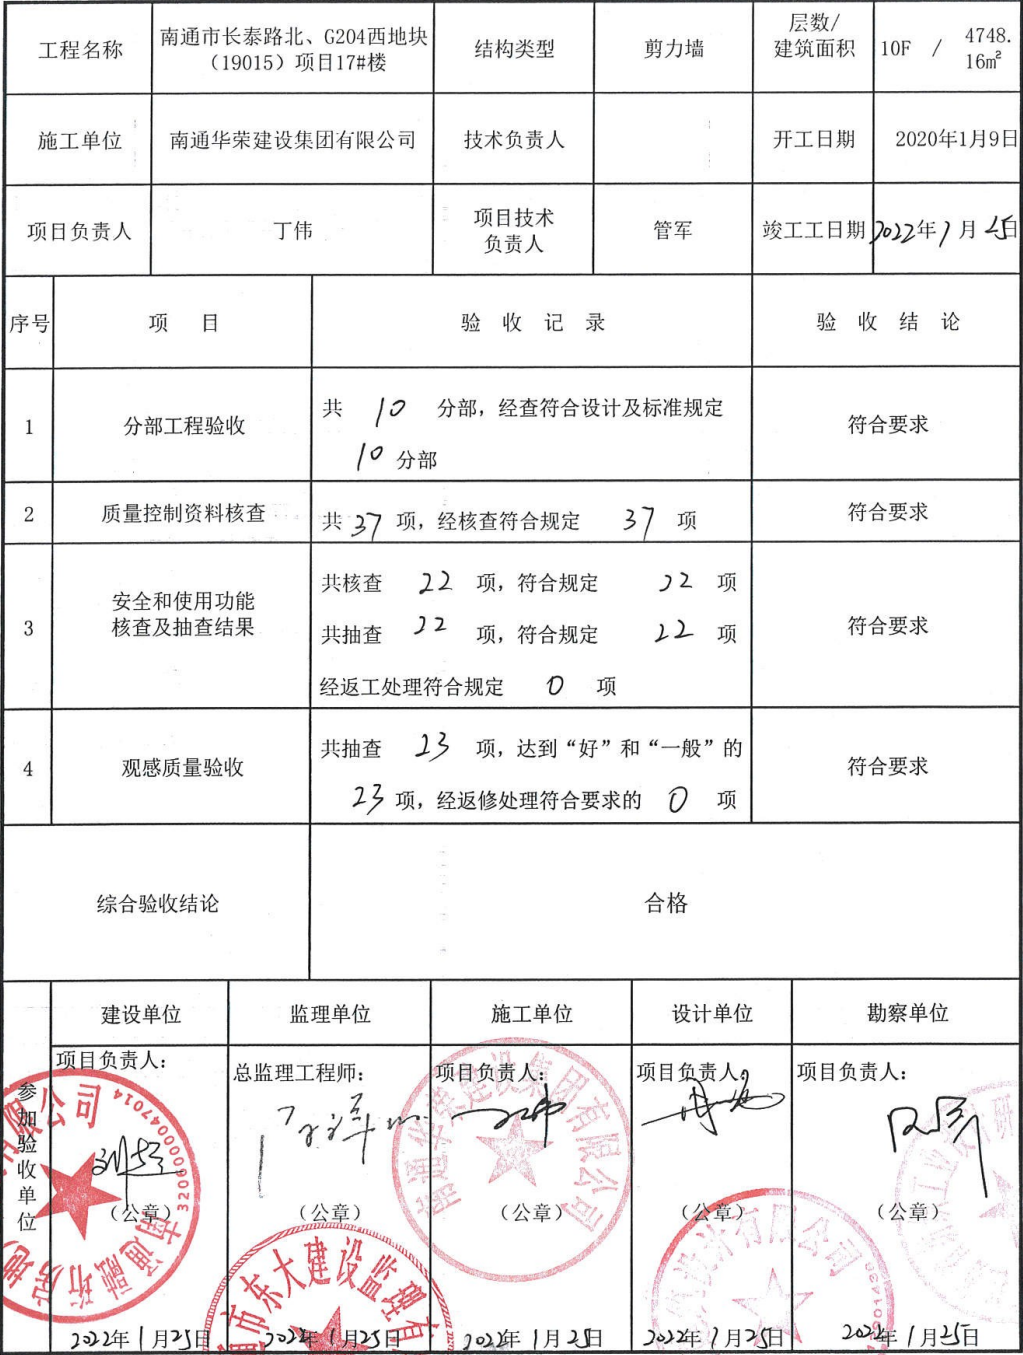 工程名称
南通市长泰路北、G204西地块
（19015）项目17#楼
结构类型
剪力墙
层数/
建筑面积
10F / 4748.
16㎡
施工单位
南通华荣建设集团有限公司
技术负责人
开工日期
2020年1月9日
项目负责人
丁伟
项目技术
负责人
管军
竣工工日期
2022年1月25日
序号
项 目
验 收 记 录
验 收 结 论
1
分部工程验收
共 10 分部，经查符合设计及标准规定
10 分部
符合要求
2
质量控制资料核查
共 37 项，经核查符合规定 37 项
符合要求
3
安全和使用功能
核查及抽查结果
共核查 22 项，符合规定 22 项
共抽查 22 项，符合规定 22 项
经返工处理符合规定 0 项
符合要求
4
观感质量验收
共抽查 23 项，达到“好”和“一般”的
23 项，经返修处理符合要求的 0 项
符合要求
综合验收结论
合格
参加验收单位
建设单位
监理单位
施工单位
设计单位
勘察单位
项目负责人：
总监理工程师：
项目负责人：
项目负责人：
项目负责人：
（公章）
（公章）
（公章）
（公章）
（公章）
2022年1月25日
2022年1月25日
2022年1月25日
2022年1月25日
2022年1月25日
南通华荣建设集团有限公司
市东大建设监理有
设计有限公司
3206000047014